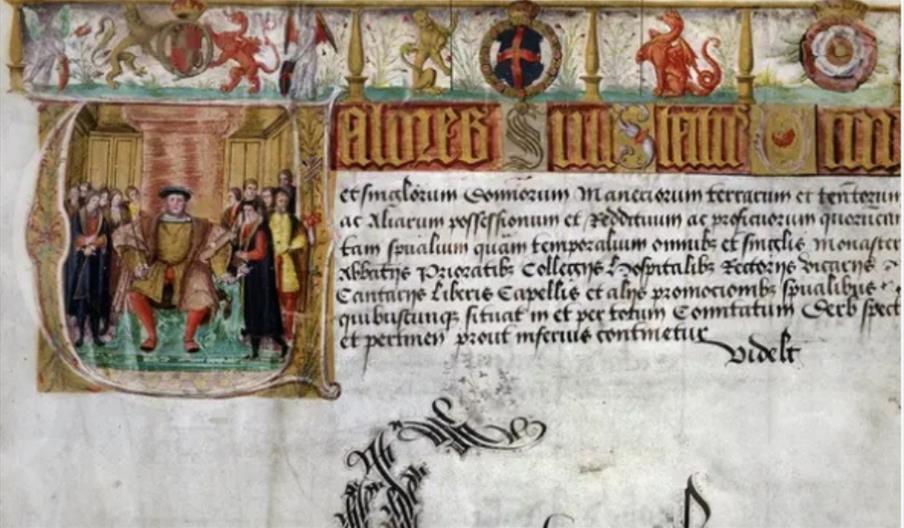 et singlorum Domiorum Maneriorum terrarum et ten̄torum
ac Aliarum possessionum et Reddituum ac proficuorum quorucun
tam spualium quam temporalium omnibȝ et singlis monaster
Abbathijs Prioratibȝ Collegijs Hospitalibȝ Rectorijs vicarijs
Cantarijs Liberis Capellis et alijs promocionibȝ spualibus
quibuscunqȝ situat in et per totum Comitatum Derb spect
et pertinen prout inferius continetur
Videlt